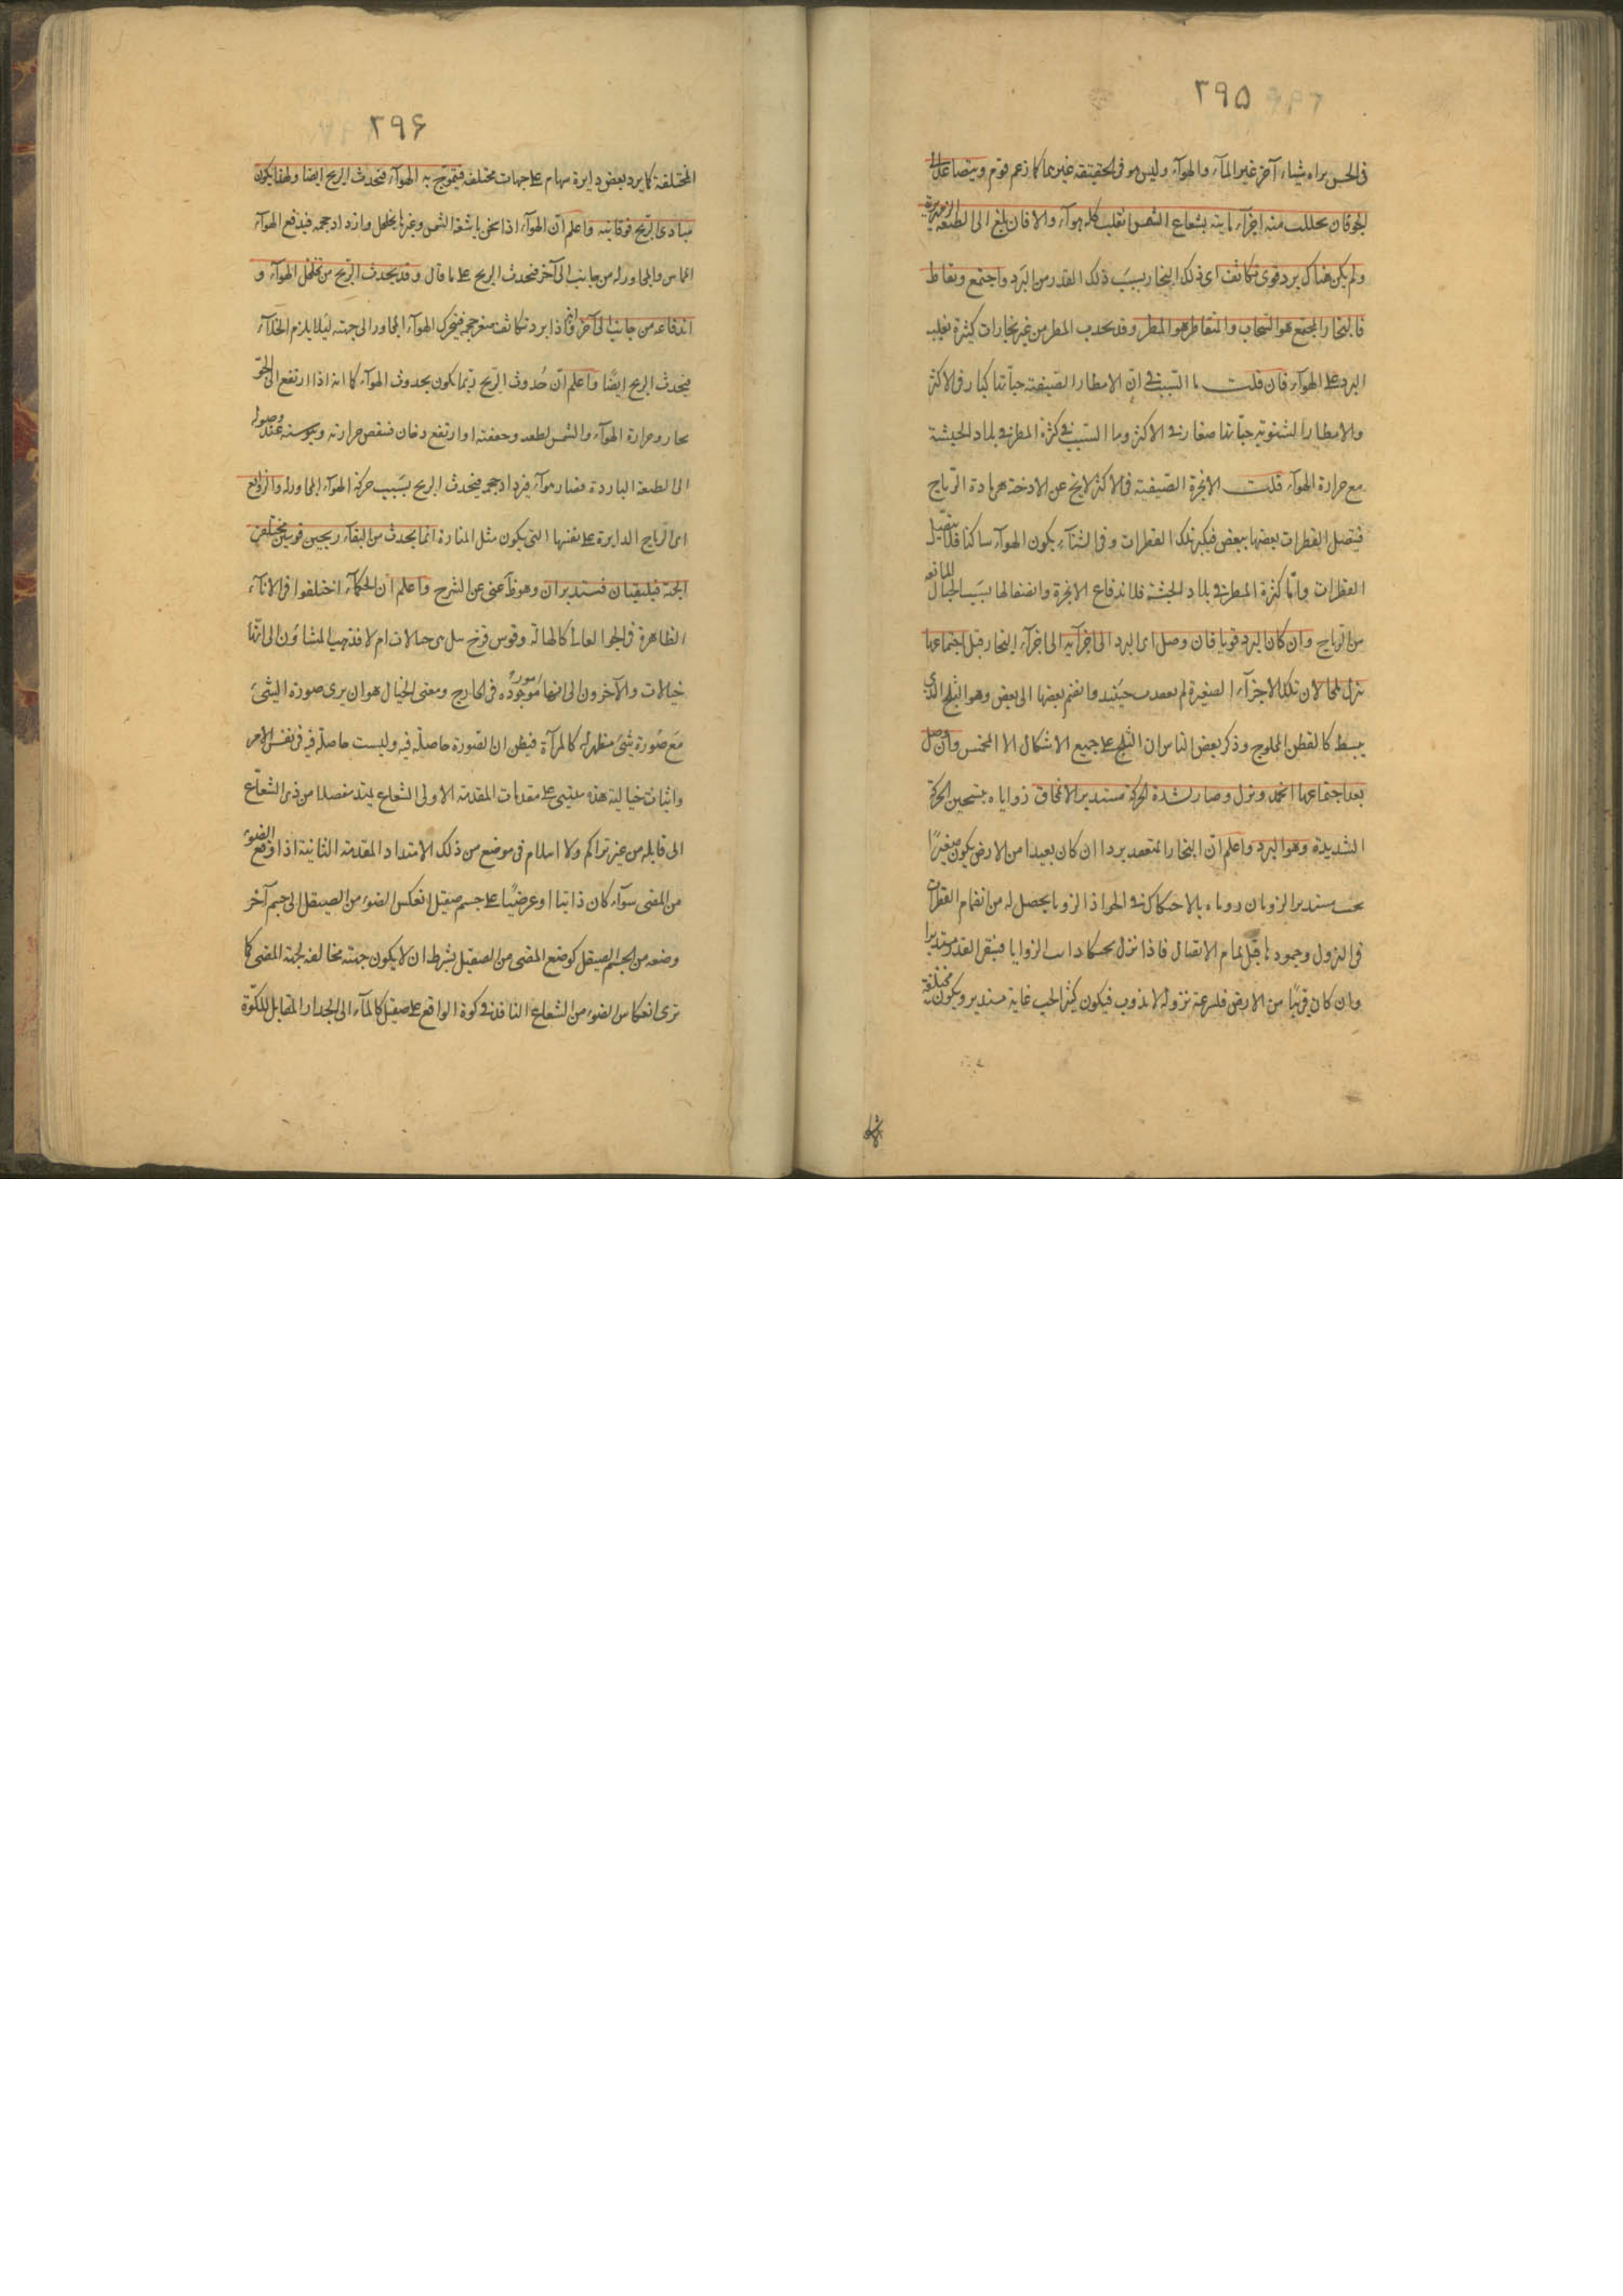 ٢٩۵
فى الحس يراه شياء آخر غير المآء والهوآء وليس هو فى الحقيقة غيرهما كما زعم قوم ويتصاعد الى
الجو فان تحللت منه اجزآء مايية بشعاع الشمس انقلب كله هوآء والا فان بلغ الى الطبقة الزمهريرية
ولم يكن هناك برد قوى تكاثف اى ذلك البخار بسبب ذلك القدر من البرد واجتمع وتقاطر
فالبخار المجتمع هو السحاب والمتقاطر هو المطر وقد يحدث المطر من غير بخارات كثيرة بغلبة
البرد على الهوآء فان قلت ما السبب فى ان الامطار الصيفية حباتها كبار فى الاكثر
والامطار الشتوية حباتها صغار فى الاكثر وما السبب فى كثرة المطر فى بلاد الحبشة
مع حرارة الهوآء قلت الابخرة الصيفية فى الاكثر لا يخ عن الادخنة هى مادة الرياح
فيتصل القطرات بعضها ببعض فيكبر تلك القطرات وفى الشتآء يكون الهوآء ساكنا فلا يتصل
القطرات واما كثرة المطر فى بلاد الحبشة فلاندفاع الابخرة وانضغاطها بسبب الجبال المانعة
من الرياح وان كان البرد قويا فان وصل اى البرد الى اجزآيه الى اجزآء البخار قبل اجتماعها
نزل ثلجا لان تلك الاجزآء الصغيرة لم حينئذ وانضم بعضها الى بعض وهو الثلج الذى
يبسط كالقطن المحلوج وذكر بعض الناس ان الثلج على جميع الاشكال الا المخمس وان وصل
بعد اجتماعها انجمد ونزل وصار لشدة الحركة مستديرا لانمحاق زواياه بتسخين الحركة
الشديدة وهو البرد واعلم ان البخار المنعقد بردا ان كان بعيدا من الارض يكون صغيرًا
مستديرا لذوبان زواياه بالاحتكاك فى الهوا اذ الزوايا يحصل له من انضمام القطرات
فى النزول وجمودها قبل تمام الاتصال فاذا نزل الزوايا فيبقى القدر مستديرا
وان كان قريبًا من الارض فلسرعة نزوله لا يذوب فيكون كبير الحب غاية مستدير ويكون مختلفة
٢٩۶
المختلفة كما يرد بعضه دايرة سهام على جهات مختلفة فيتموج به الهوآء فتحدث الريح ايضا ولهذا يكون
مبادى الريح فوقانية واعلم ان الهوآء اذا سخن باشعة الشمس وغيرها تخلخل وازداد حجمه فيدفع الهوآء
المماس والمجاور له من جانب الى آخر فتحدث الريح على ما قال وقد يحدث الريح من تخلخل الهوآء و
اندفاعه من جانب الى آخر وايضا اذا برد تكاثف صغر حجمه فيتحرك الهوآء المجاور الى جهته ليلا يلزم الخلآء
فيحدث الريح ايضًا واعلم ان حُدوث الريح ربما يكون بحدوث الهوآء كما انه اذا ارتفع الى الجو
بخار وحرارة الهوآء والشمس لطفه وجففته او ارتفع دخان فنقص حرارته ويبوسته عند وصوله
الى الطبقة الباردة فصار هوآء فيزداد حجمه فيحدث الريح بسبب حركة الهوآء المجاورة والزوابع
اى الرياح الدايرة على نفسها التى يكون مثل المنارة انما يحدث من التقآء ريحين قويتين مختلفى
الجهة فيلتقيان فتستديران وهو ظ غنى عن الشرح واعلم ان الحكمآء اختلفوا فى الآثار
الظاهرة فى الجو العالى كالهالة وقوس قزح هل هى خيالات ام لا فذهب المشاؤن الى انها
خيالات والآخرون الى انها امور موجودة فى الخارج ومعنى الخيال هو ان يرى صورة الشئ
مع صُورة شئ مظهر له كالمرآة فيظن ان الصورة حاصلة فيه وليست حاصلة فيه فى نفس الامر
واثبات خيالية هذه يبتنى على مقدمات المقدمة الاولى الشعاع يمتد منفصلا من ذى الشعاع
الى قابله من غير تراكم ولا انثلام فى موضع من ذلك الامتداد المقدمة الثانية اذا وقع الضوء
من المضى سوآء كان ذاتيا او عرضيًا على جسم صقيل انعكس الضوء من الصيقل الى جسم آخر
وضعه من الجسم الصيقل كوضع المضى من الصقيل بشرط ان لا يكون جهته مخالفة لجهة المضى كما
ترى انعكاس الضوء من الشعاع النافذ فى كوة الواقع على صقيل كالمآء الى الجدار المقابل للكوة